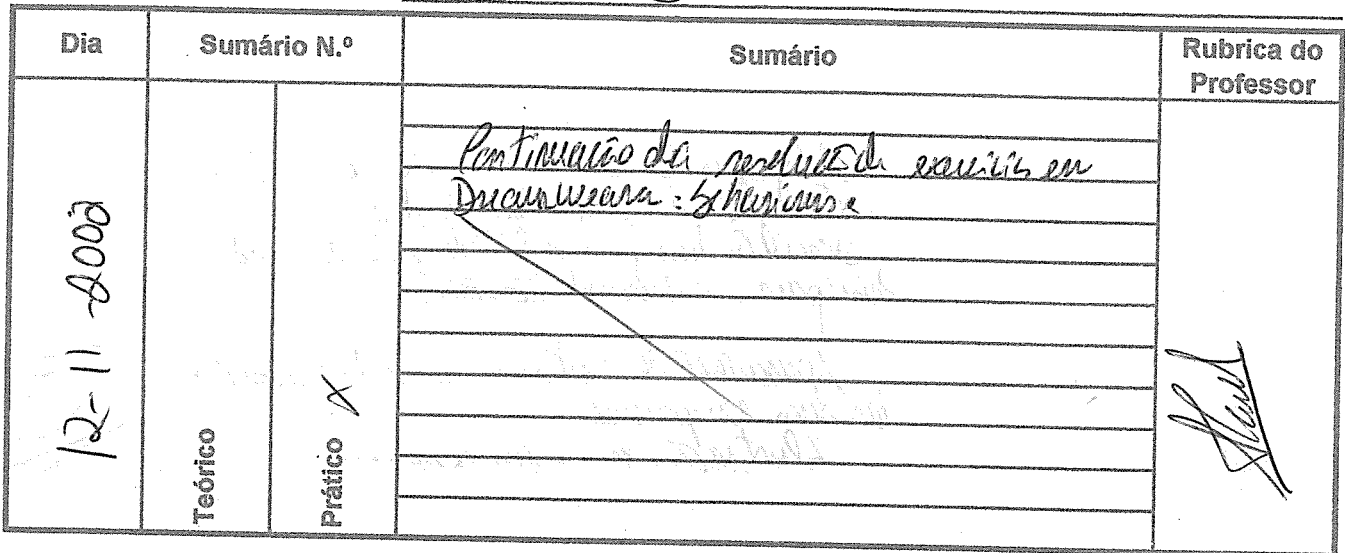 Dia
Sumário N.º
Sumário
Rubrica do
Professor
12-11-2002
Teórico
Prático X
Continuação da resolução de exercícios em
Dreamweaver: